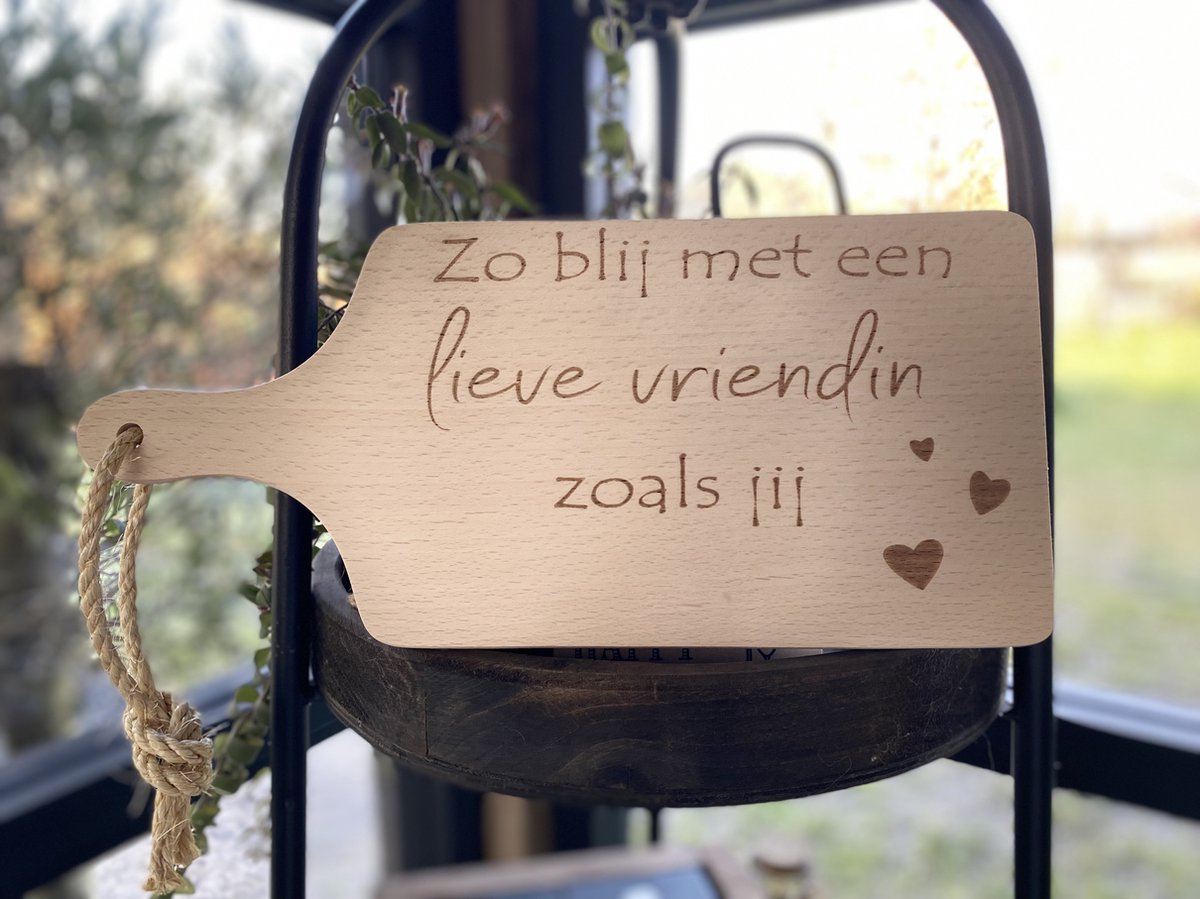 Zo blij met een
lieve vriendin
zoals jij